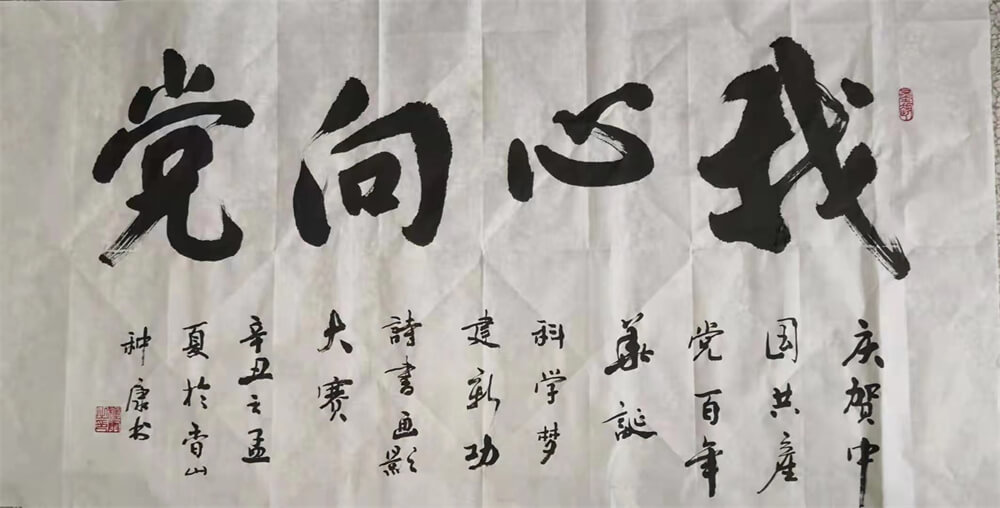 我心向党
庆贺中
国共産
党百年
華诞
科学梦
建新功
詩书画影
大赛
辛丑之孟
夏於香山
种康书